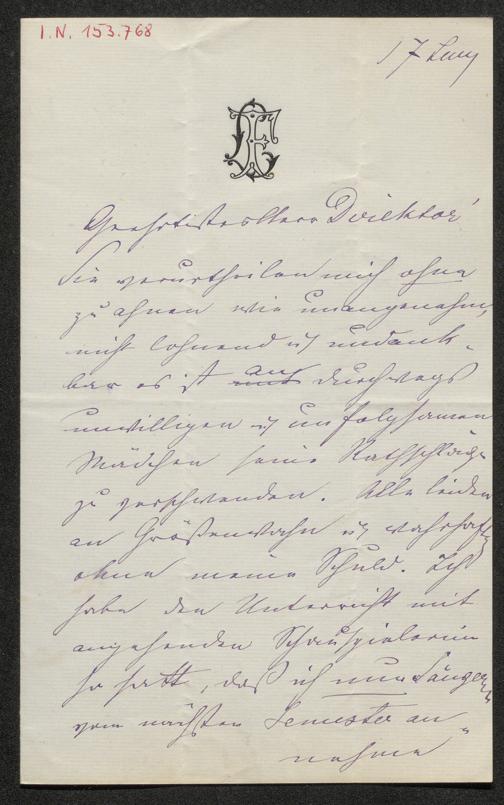 I.N. 153.768
17 Juny
Geehrtester Herr Direktor!
Sie verurtheilen mich ohne
zu ahnen wie unangenehm,
nicht lohnend u undank-
bar es ist mit an durchwegs
unwilligen u unfolgsamen
Mädchen seine Rathschläge
zu verschwenden. Alle leiden
an Größenwahn u wahrhaftig
ohne meine Schuld. Ich
habe den Unterricht mit
angehenden Schauspielerinen
so satt, daß ich nur Sänger
vom nächsten Semester an-
nehme